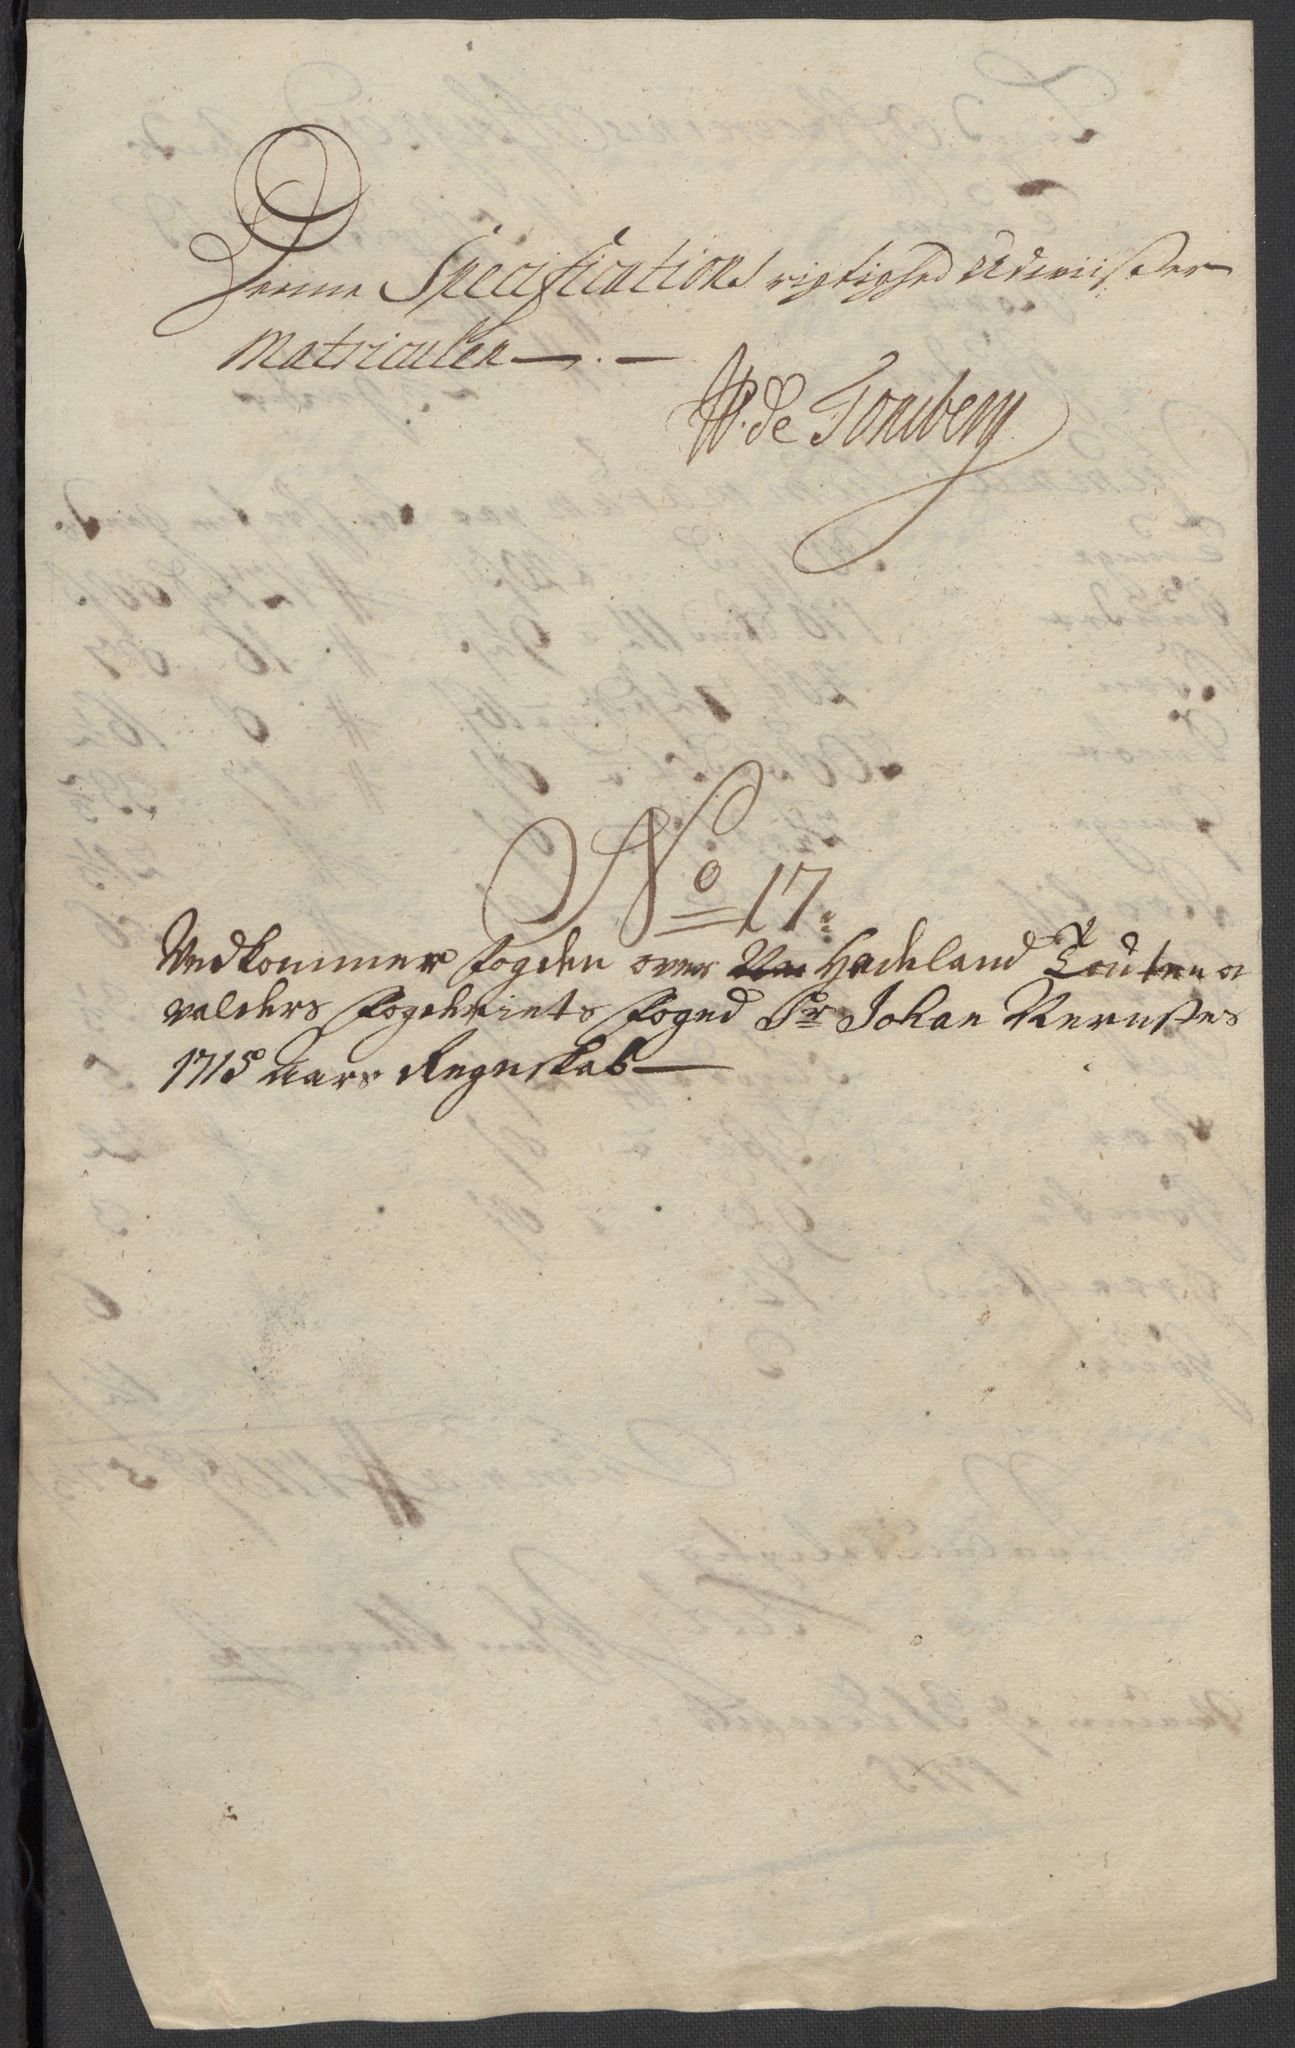 Denne Specifications rigtighed Udviisser
Matriculen
W. de Tonsberg
No 17.
Vedkommer fogden over Hadeland Toten o
valders fogderiets foged Sr Johan
1715 aars Regnskab